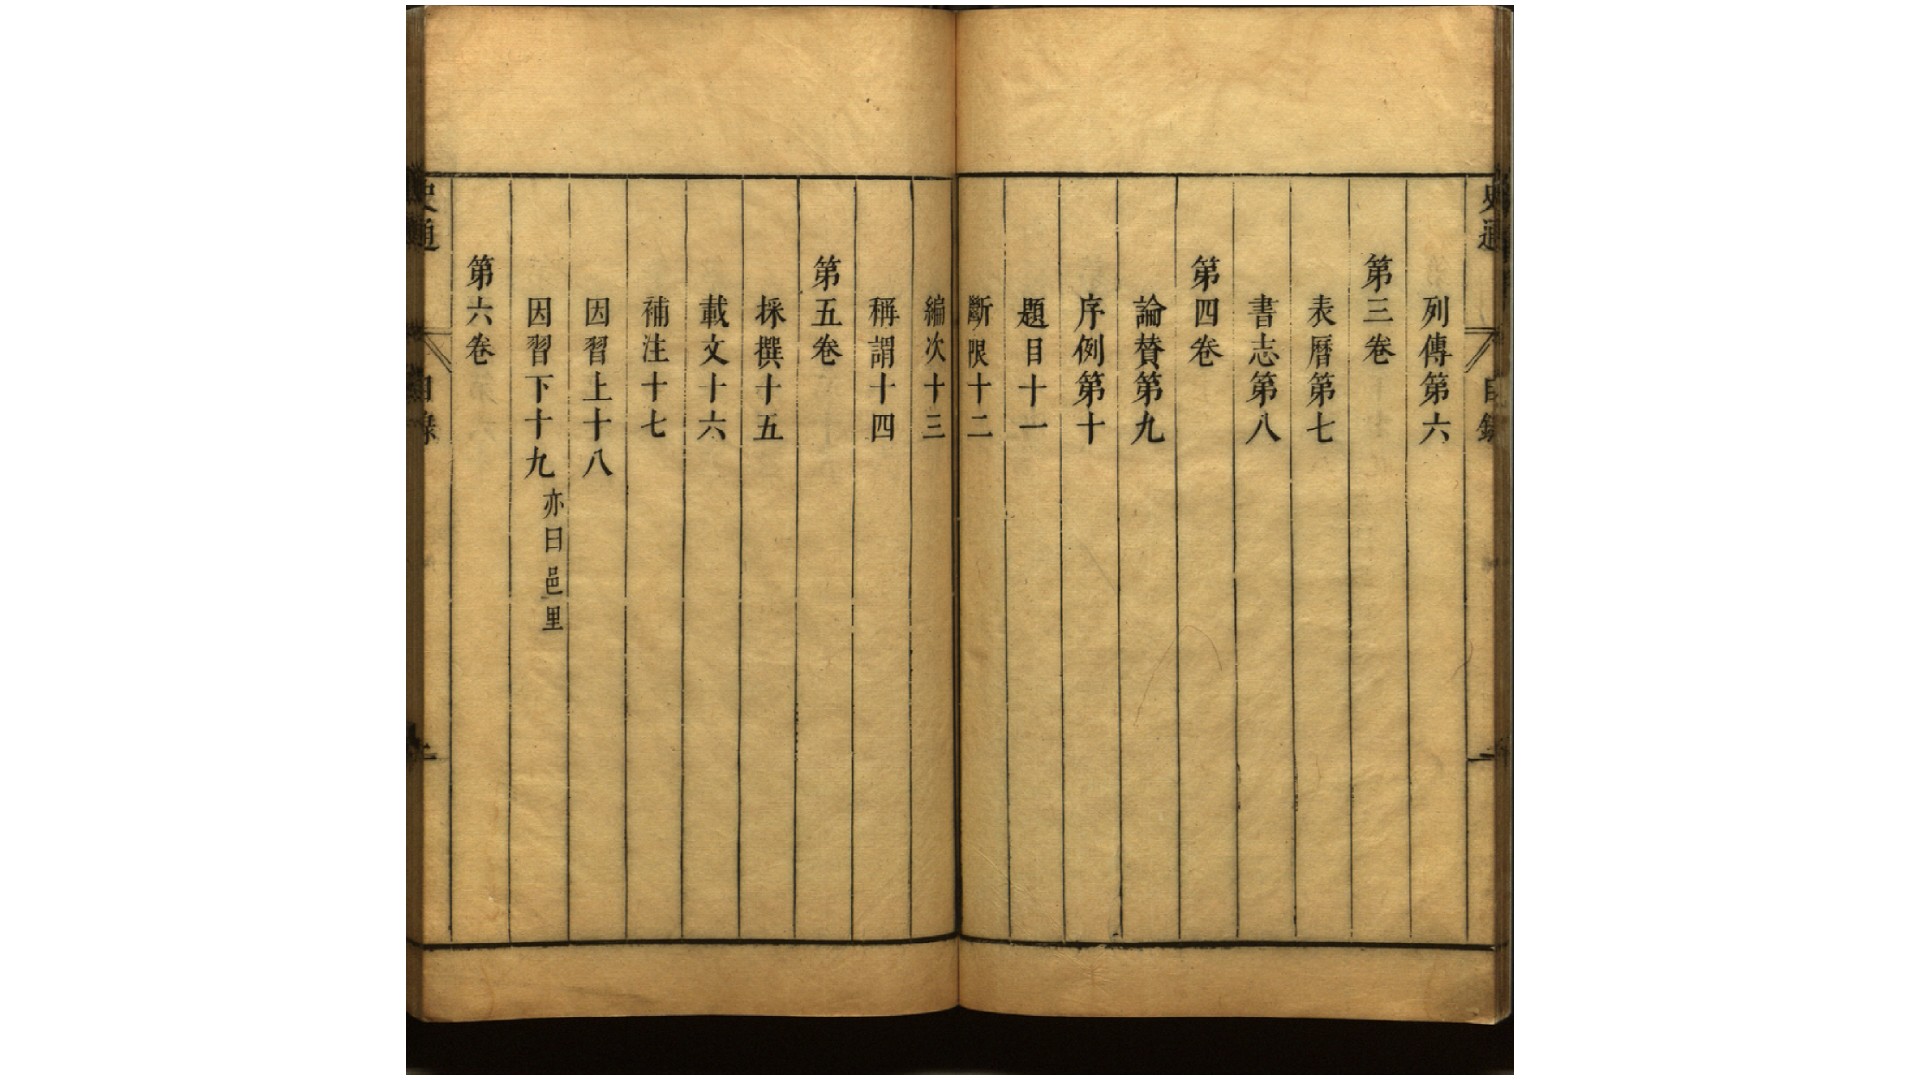 史通
目錄
列傳第六
第三卷
表曆第七
書志第八
第四卷
論賛第九
序例第十
題目十一
斷限十二
編次十三
稱謂十四
第五卷
採撰十五
載文十六
補注十七
因習上十八
因習下十九亦曰邑里
第六卷
史通
目錄